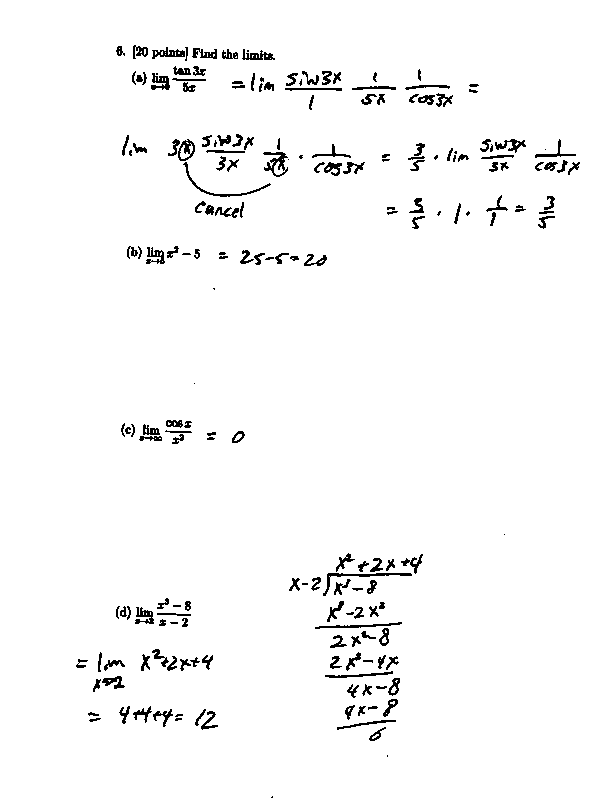 6. [20 points] Find the limits.
(a) lim x→0 tan 3x / 5x = lim sin3x / 1 · 1 / 5x · 1 / cos3x =
lim 3x sin3x / 3x · 1 / 5x · 1 / cos3x = 3/5 · lim sin3x / 3x · 1 / cos3x
cancel
= 3/5 · 1 · 1/1 = 3/5
(b) lim x→5 x² − 5 = 25-5=20
(c) lim x→∞ cos x / x³ = 0
(d) lim x→2 x³ − 8 / x − 2
= lim x→2 x²+2x+4
= 4+4+4 = 12
x²+2x+4
x-2) x³-8
x³-2x²
2x²-8
2x²-4x
4x-8
4x-8
0